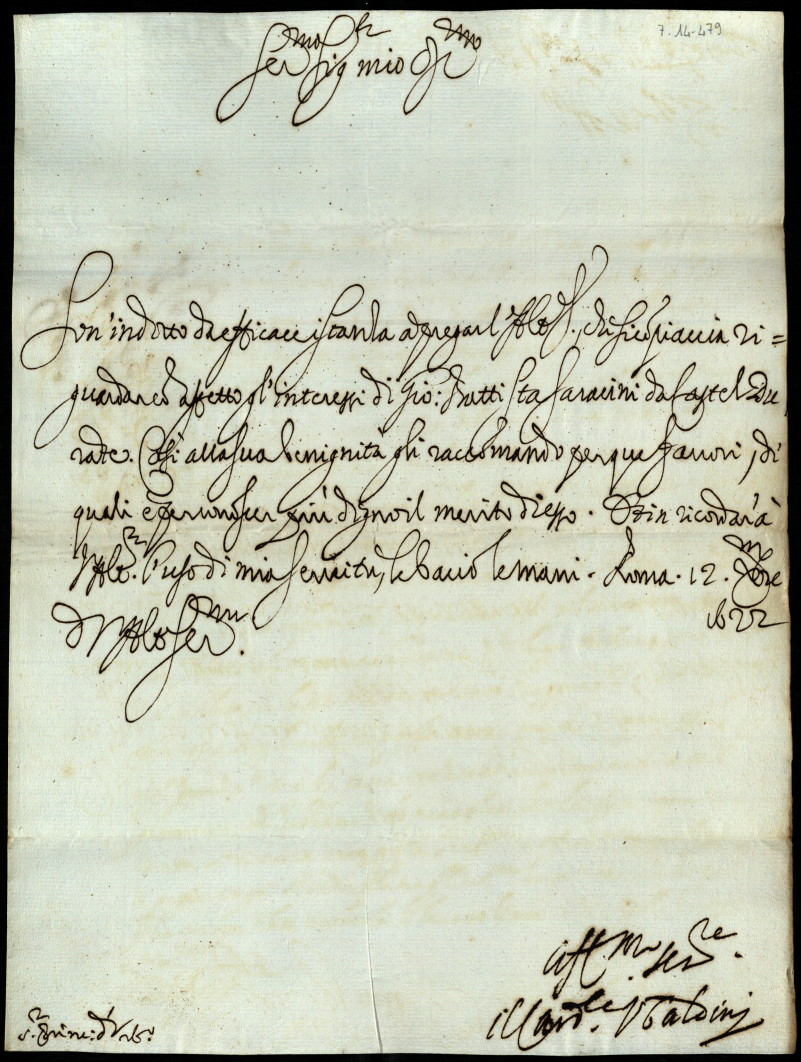 7-14-479
Ser.mo Sig.r mio Oss.mo
Son' indotto da efficace istanza a pregar l'Alt.a V., che si compiaccia ri=
guardar co' affetto gl'interessi di Gio: Battista Saracini da Castel Du
rate. Così alla sua benignità gli raccomando per que favori, di
quali è per conoscer più digno il merito di esso. Et in ricordar' à
V. Alt. l'uso di mia servitù, le bacio le mani. Roma. 12. Xbre
1622
D V. Alt.a Ser.ma
Aff.mo ser.re
Il Card.le Ubaldini
S.r Prin.e d'Urb.o